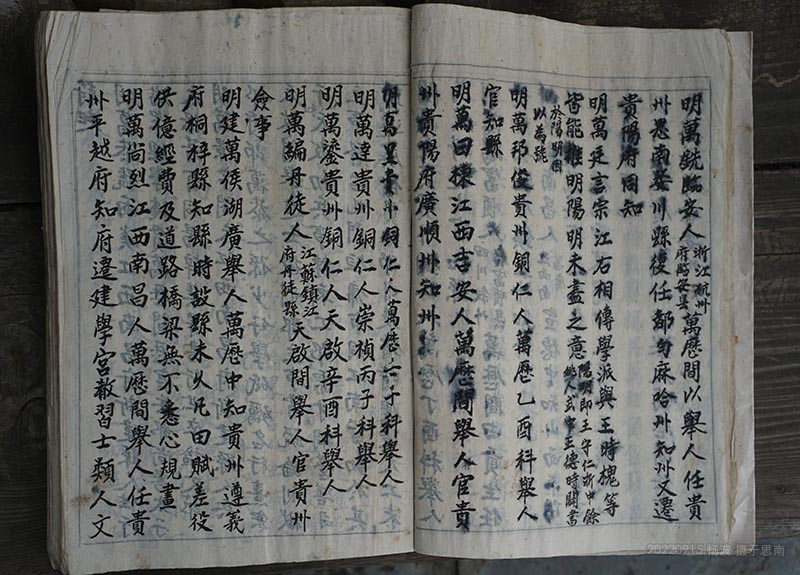 明萬銑臨安人浙江杭州府臨安縣萬曆間以舉人任貴
州思南安川縣復任都勻麻哈州知州又遷
貴陽府同知
明萬廷言宗江右相傳學派與王時槐等
皆能推明陽明未盡之意陽明即王守仁浙中餘姚人正德時開書
於陽明洞以為號
明萬邦俊貴州銅仁人萬曆乙酉科舉人
官知縣
明萬曰棟江西吉安人萬曆間舉人官貴
州貴陽府廣順州知州
明萬里貴州銅仁人萬曆壬子科舉人
明萬達貴州銅仁人崇禎丙子科舉人
明萬鎏貴州銅仁人天啟辛酉科舉人
明萬編丹徒人江蘇鎮江府丹徒縣天啟間舉人官貴州
僉事
明建萬侯湖廣舉人萬歷中知貴州遵義
府桐梓縣知縣時設縣未久凡田賦差役
供億經費及道路橋梁無不悉心規畫
明萬尚烈江西南昌人萬曆間舉人任貴
州平越府知府遷建學宮教習士類人文
20220915.楊波 攝于思南